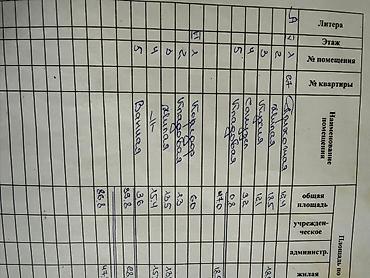 Литера
Этаж
№ помещения
№ квартиры
Наименование помещения
общая площадь
учрежден-ческое
администр.
жилая
Площадь по
А I 1 67 Прихожая
2 жилая 18,5
3 Кухня 12,1
4 Санузел 3,2
5 Кладовая 0,8
47,0
II 1 Коридор 6,0
2 Кладовая 1,3
3 жилая 13,5
4 -"- 15,4
5 Ванная 3,6
39,8
86,8